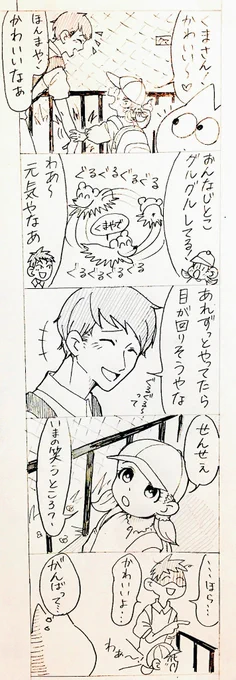 くまさん!
かわいい〜♡
ほんまや〜
かわいいなぁ
おんなじとこ
グルグルしてる。
ぐるぐるぐるぐる
くまやで
ぐるぐるぐるぐる
わあ〜
元気やなあ
あれずっとやてたら
目が回りそうやな
ぐるぐる〜
って
せんせぇ
いまの笑うところ?
…ほら…
かわいいよ…
わあ〜
がんばって…